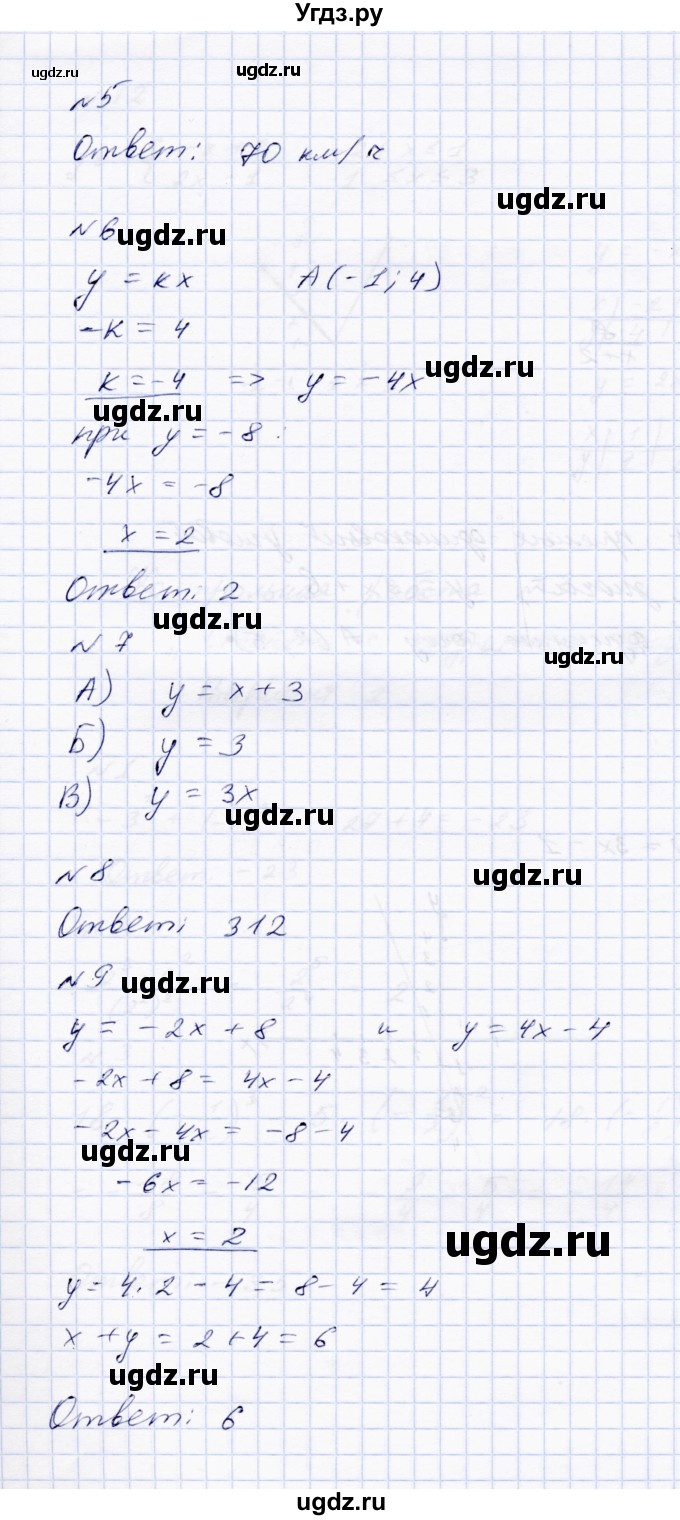 Угдз.ру
ugdz.ru
ugdz.ru
№5
Ответ: 70 км/ч
ugdz.ru
№6
ugdz.ru
y = кx A(-1; 4)
-к = 4
ugdz.ru
к = -4 => y = -4x
ugdz.ru
при y = -8:
-4x = -8
x = 2
Ответ: 2
ugdz.ru
№ 7
ugdz.ru
А) y = x + 3
Б) y = 3
В) y = 3x
ugdz.ru
№ 8
ugdz.ru
Ответ: 312
№ 9
ugdz.ru
y = -2x + 8 и y = 4x - 4
-2x + 8 = 4x - 4
-2x - 4x = -8 - 4
ugdz.ru
-6x = -12
x = 2
ugdz.ru
y = 4 · 2 - 4 = 8 - 4 = 4
x + y = 2 + 4 = 6
ugdz.ru
Ответ: 6
ugdz.ru